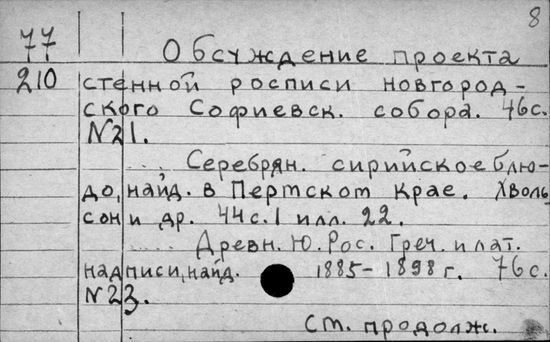 8
77 Обсуждение проекта
210 стенной росписи новгород-
ского Софиевск. собора. 46с.
N21.
.... Серебрян. сирийское блю-
до, найд. в Пертскот крае. Хволь
сон и др. 44с. 1 илл. 22.
.... Древн. Ю. Рос. Греч. и лат.
надписи, найд. 1885-1898 г. 76с.
N23.
Ст. продолж.